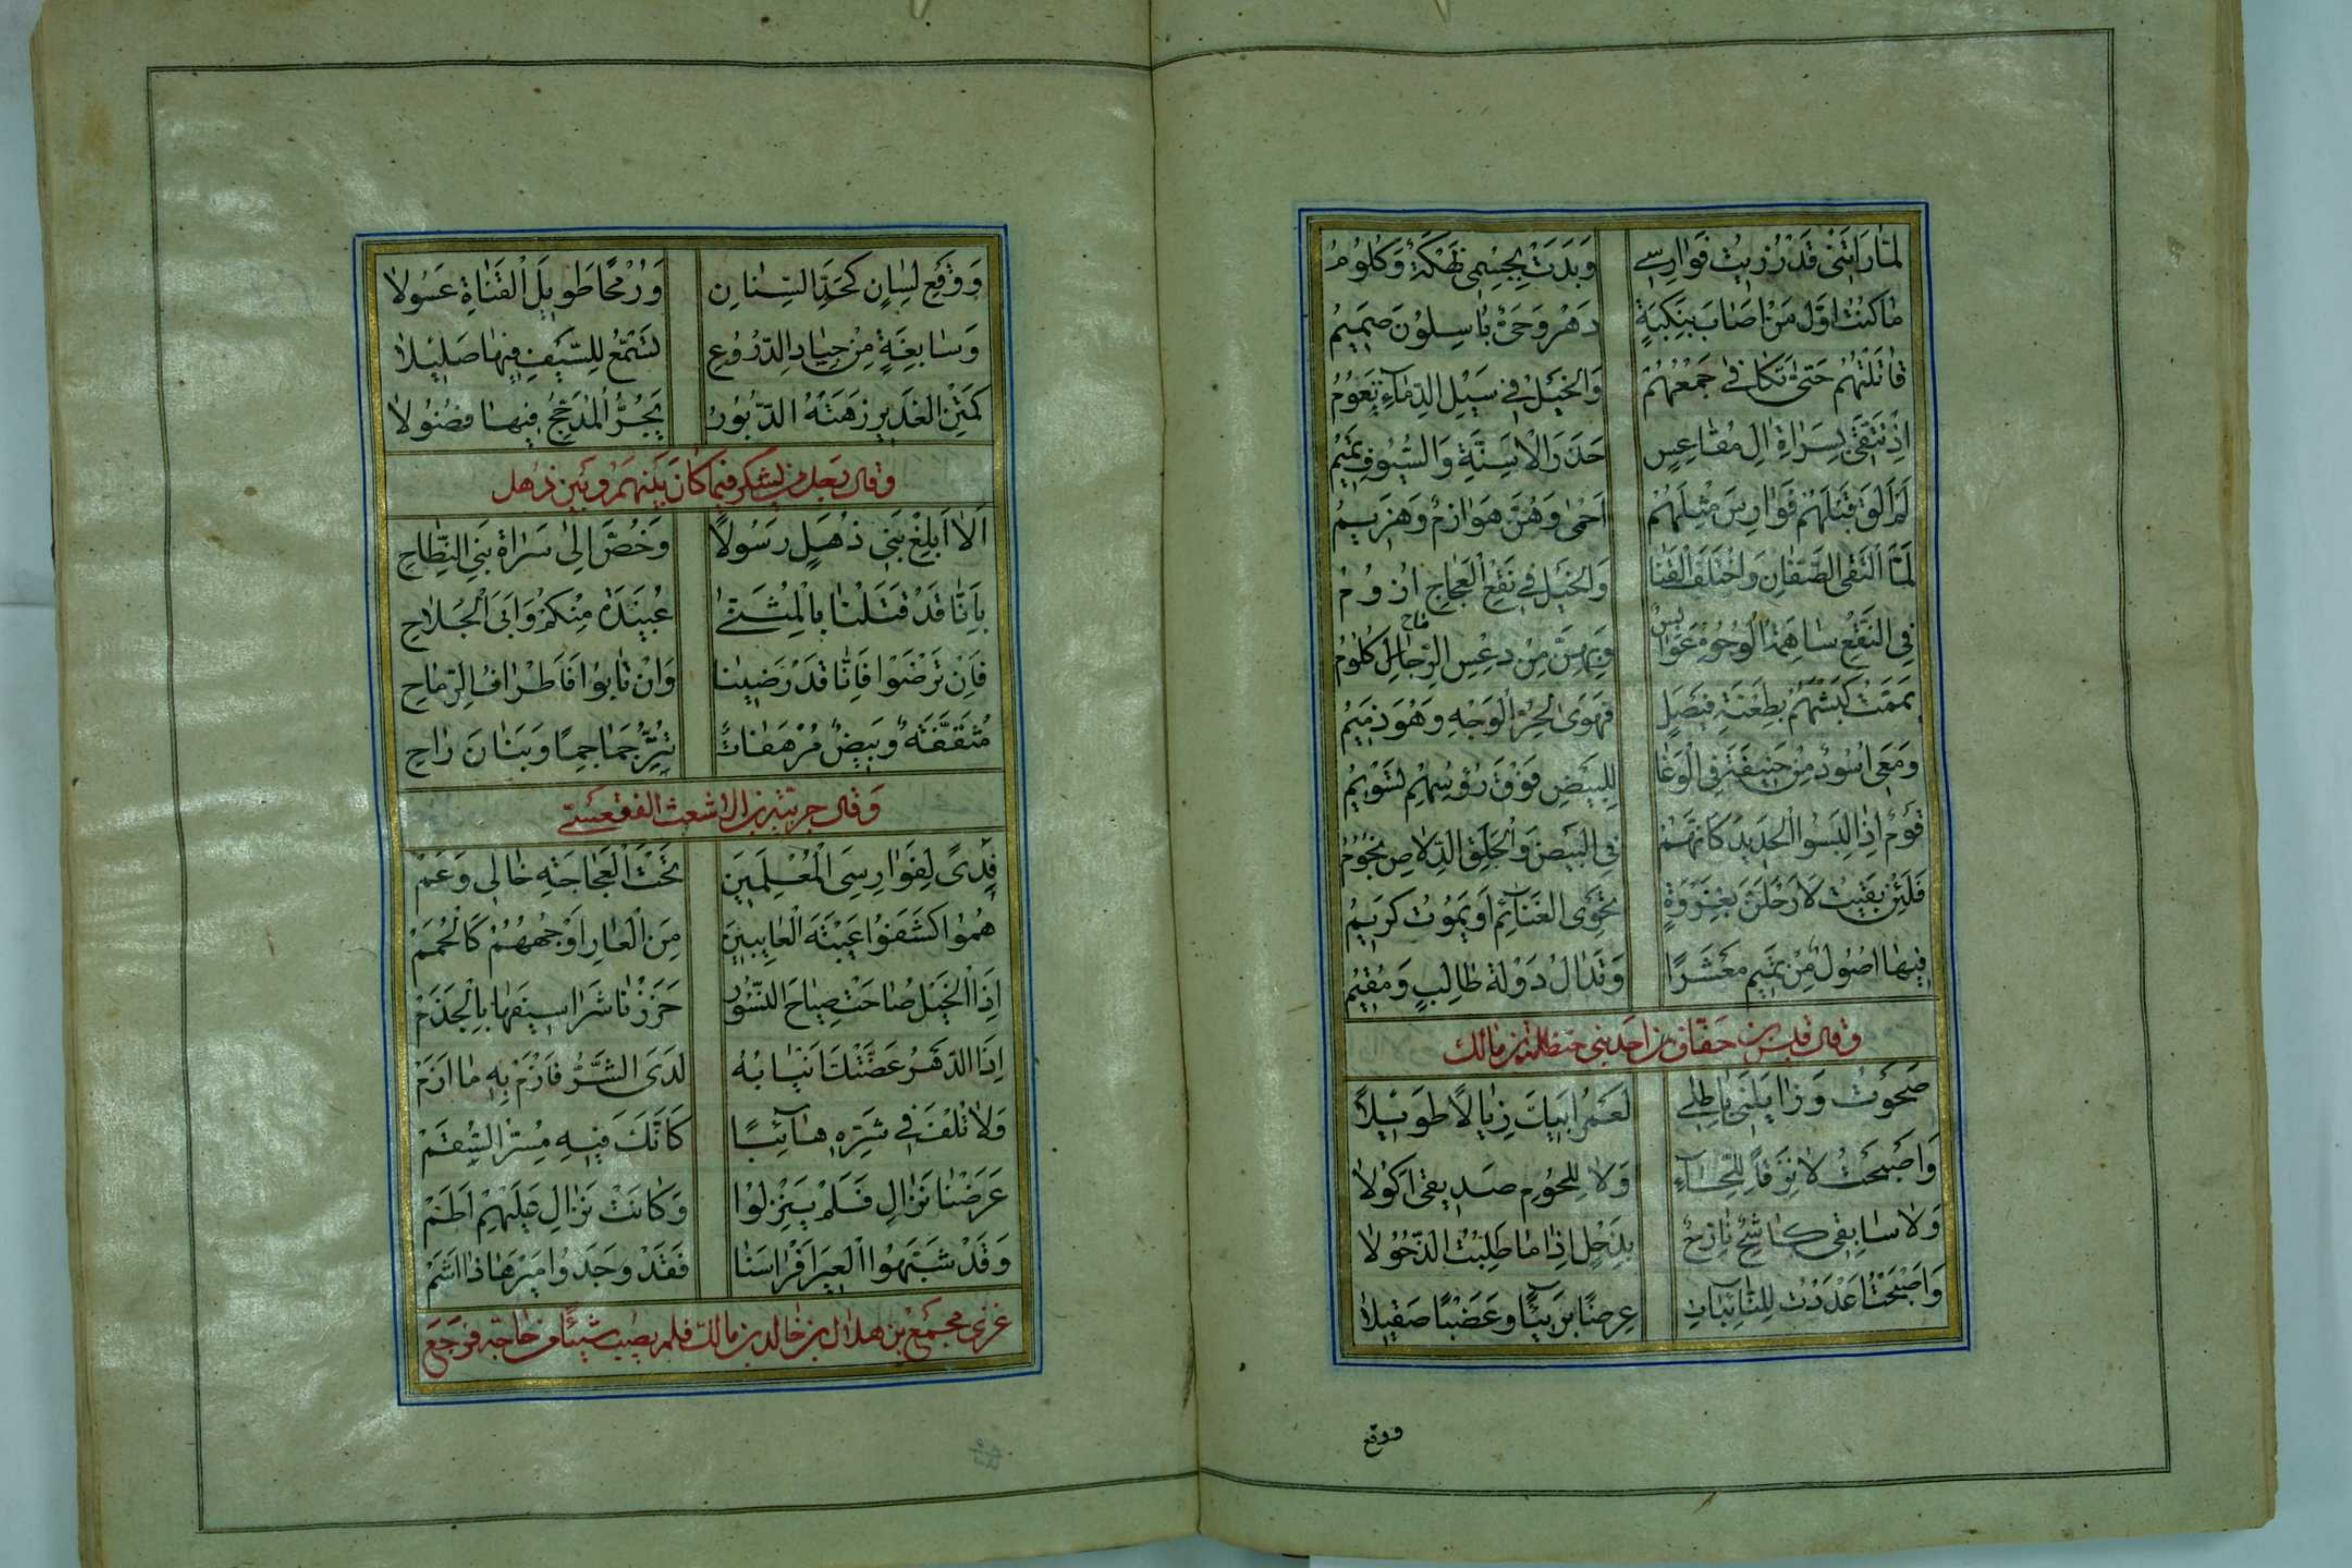 لَمّٰا رَاَتْنٖى قَدْ رُزِيتُ فَوٰارِسٖى وَبَدَتْ بِجِسْمٖى نَهْكَةٌ وَكُلُومُ
مٰا كُنْتُ اَوَّلَ مَنْ اَصٰابَ بِنَكْبَةٍ دَهْرٌ وَحَىٌّ بٰاسِلُونَ صَمٖيمُ
قٰاتَلْتُهُمْ حَتّٰى تَكٰافٰى جَمْعُهُمْ وَالخَيْلُ فٖى سَيْلِ الدِّمٰآءِ تَعُومُ
اِذْ تَتَّقٖى بِسَرٰاةِ اٰلِ مُقٰاعِسٍ حَذَرَ الْاَسِنَّةِ وَالسُّيُوفِ تَمٖيمُ
لَمْ اَلْقَ قَبْلَهُمْ فَوٰارِسَ مِثْلَهُمْ اَحْمٰى وَهُنَّ هَوٰازِمٌ وَهَزٖيمُ
لَمَّا الْتَقَى الصَّفّٰانِ وَاخْتَلَفَ القَنٰا وَالخَيْلُ فٖى نَقْعِ الْعَجٰاجِ اُزُومُ
فِى النَّقْعِ سٰاهِمَةُ الْوُجُوهِ عَوٰابِسٌ وَبِهِنَّ مِنْ دَعْسِ الرِّمٰاحِ كُلُومُ
يَمَّمْتُ كَبْشَهُمْ بِطَعْنَةِ فَيْصَلٍ فَهَوٰى لِحُرِّ الْوَجْهِ وَهْوَ ذَمٖيمُ
وَمَعٖى اُسُودٌ مِنْ حَنٖيفَةَ فِى الْوَغٰا لِلْبَيْضِ فَوْقَ رُؤُسِهِمْ تَسْوٖيمُ
قَوْمٌ اِذٰا لَبِسُوا الْحَدٖيدَ كَاَنَّهُمْ فِى الْبَيْضِ وَالْحَلَقِ الدِّلٰاصِ نُجُومُ
فَلَئِنْ بَقٖيتُ لَاَرْحَلَنَّ بِغَزْوَةٍ تَحْوِى الغَنٰآئِمَ اَوْ يَمُوتُ كَرٖيمُ
فٖيهٰا اُصُولٌ مِنْ تَمٖيمٍ مَعْشَرًا وَتُدٰالُ دَوْلَةُ طٰالِبٍ وَمُقٖيمُ
وقال قيس بن خفاف بن احد بنى حنظلة بن مالك
صَحَوْتُ وَزٰايَلَنٖى بٰاطِلٖى لَعَمْرُ اَبٖيكَ زِيٰالًا طَوٖيلًا
وَاَصْبَحْتُ لٰا نَزِقًا لِلِّحٰآءِ وَلٰا لِلُحُومِ صَدٖيقٖى اَكُولًا
وَلٰا سٰابِقٖى كٰاشِحٌ نٰازِحٌ بِذَحْلٍ اِذٰا مٰا طَلَبْتُ الذُّحُولٰا
وَاَصْبَحْتُ اَعْدَدْتُ لِلنّٰائِبٰاتِ عِرْضًا بَرٖيئًا وَعَضْبًا صَقٖيلًا
ووقع
وَوَقْعَ لِسٰانٍ كَحَدِّ السِّنٰانِ وَرُمْحًا طَوٖيلَ الْقَنٰاةِ عَسُولًا
وَسٰابِغَةً مِنْ جِيٰادِ الدُّرُوعِ تَسْمَعُ لِلسَّيْفِ فٖيهٰا صَلٖيلًا
كَمَتْنِ الْغَدٖيرِ زَهَتْهُ الدَّبُورُ يَجُرُّ الْمُدَجَّجُ فٖيهٰا فُضُولًا
وقال رجل من يشكر فيما كان بينهم وبين ذهل
اَلٰا اَبْلِغْ بَنٖى ذُهْلٍ رَسُولًا وَخُصَّ اِلٰى سَرٰاةِ بَنِى النِّطٰاحِ
بِاَنّٰا قَدْ قَتَلْنٰا بِالْمُثَنّٰى عُبَيْدَةَ مِنْكُمُ وَاَبَى الْجُلٰاحِ
فَاِنْ تَرْضَوْا فَاِنّٰا قَدْ رَضٖينٰا وَاِنْ تَاْبَوْا فَاَطْرٰافُ الرِّمٰاحِ
مُثَقَّفَةٌ وَبٖيضٌ مُرْهَفٰاتٌ تُتِرُّ جَمٰاجِمًا وَبَنٰانَ رٰاحِ
وقال جريبة بن الاشعث الفقعسى
فِدًى لِفَوٰارِسِىَ الْمُعْلِمٖينَ تَحْتَ الْعَجٰاجَةِ خٰالٖى وَعَمْ
هُمُوا كَشَفُوا عَيْبَةَ الْعٰايِبٖينَ مِنَ الْعٰارِ اَوْجُهُهُمْ كَالْحُمَمْ
اِذَا الْخَيْلُ صٰاحَتْ صِيٰاحَ النُّسُورِ حَزَزْنٰا شَرٰاسٖيفَهٰا بِالْجَذَمْ
اِذَا الدَّهْرُ عَضَّتْكَ اَنْيٰابُهُ لَدَى الشَّرِّ فَازْمْ بِهِ مٰا اَزَمْ
وَلٰا تُلْفَ فٖى شَرِّهٖ هٰآئِبًا كَاَنَّكَ فٖيهِ مُسِرُّ السَّقَمْ
عَرَضْنٰا نَزٰالِ فَلَمْ يَنْزِلُوا وَكٰانَتْ نَزٰالِ عَلَيْهِمْ اَطَمْ
وَقَدْ شَبَّهُوا الْعٖيرَ اَفْرٰاسَنٰا فَقَدْ وَجَدُوا مَيْرَهٰا ذٰا اَشَمْ
غزى مجمع بن هلال بن خالد بن مالك فلم يصيب شيئًا من خاجته فرجع